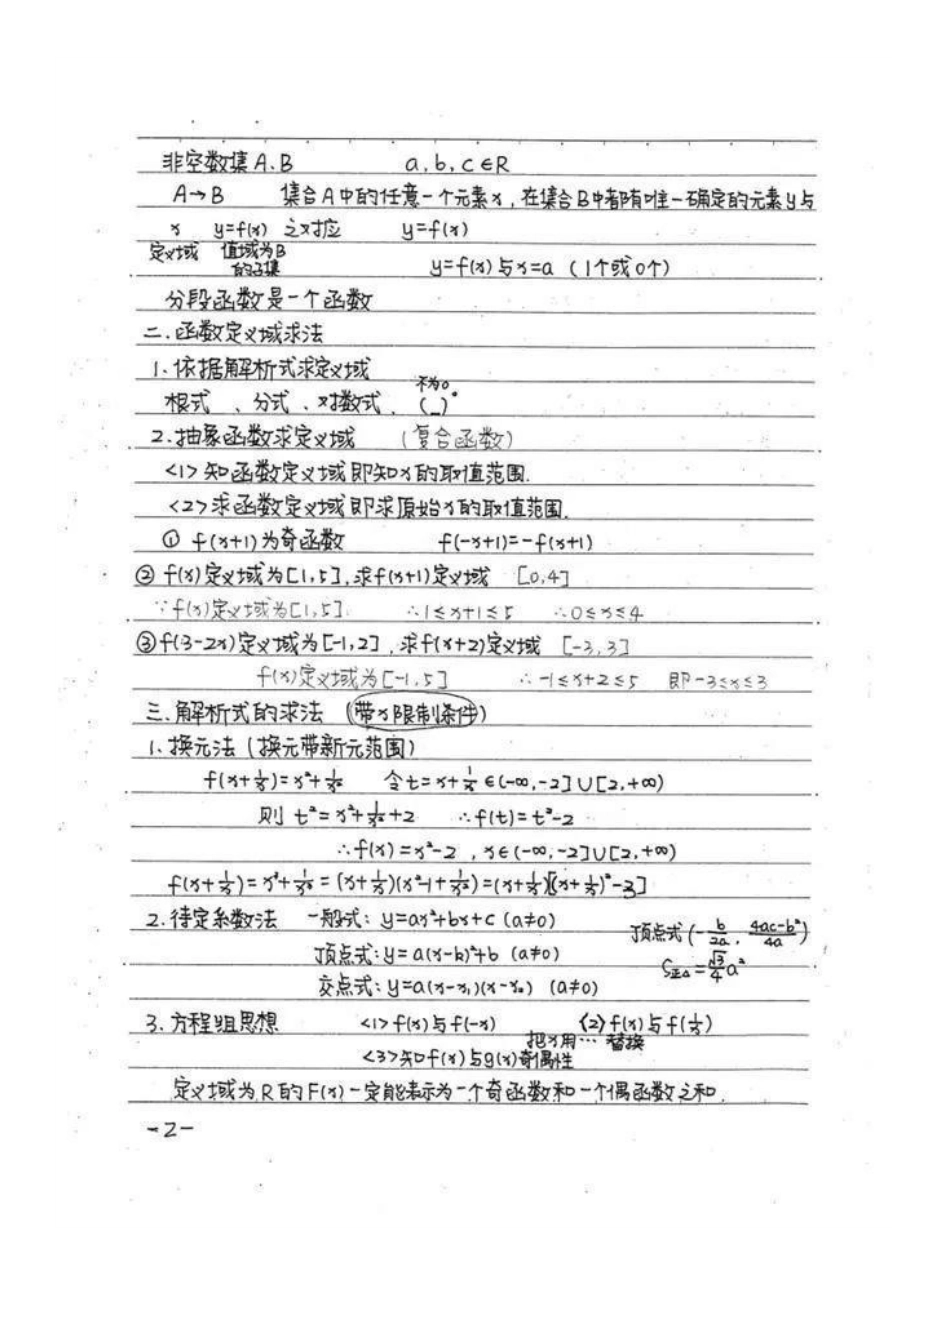 非空数集A.B a,b,c∈R
A→B 集合A中的任意一个元素x,在集合B中都有唯一确定的元素y与
x y=f(x) 之对应 y=f(x)
定义域 值域为B的子集 y=f(x)与x=a (1个或0个)
分段函数是一个函数
二.函数定义域求法
1.依据解析式求定义域
根式、分式、对数式、(_)⁰ 不为0
2.抽象函数求定义域 (复合函数)
<1>知函数定义域即知x的取值范围.
<2>求函数定义域即求原始x的取值范围.
① f(x+1)为奇函数 f(-x+1)=-f(x+1)
② f(x)定义域为[1,5],求f(x+1)定义域 [0,4]
∵f(x)定义域为[1,5]. ∴1≤x+1≤5 ∴0≤x≤4
③f(3-2x)定义域为[-1,2],求f(x+2)定义域 [-3,3]
f(x)定义域为[-1,5] ∴-1≤x+2≤5 即-3≤x≤3
三.解析式的求法 (带x限制条件)
1.换元法(换元带新元范围)
f(x+1/x)=x²+1/x² 令t=x+1/x∈(-∞,-2]∪[2,+∞)
则 t²=x²+1/x²+2 ∴f(t)=t²-2
∴f(x)=x²-2,x∈(-∞,-2]∪[2,+∞)
f(x+1/x)=x³+1/x³=(x+1/x)(x²-1+1/x²)=(x+1/x)[(x+1/x)²-3]
2.待定系数法 一般式:y=ax²+bx+c (a≠0) 顶点式(-b/2a,(4ac-b²)/4a)
顶点式:y=a(x-k)²+b (a≠0) S正△=√3/4 a²
交点式:y=a(x-x₁)(x-x₂) (a≠0)
3.方程组思想 <1>f(x)与f(-x) <2>f(x)与f(1/x)
把x用…替换
<3>知f(x)与g(x)奇偶性
定义域为R的F(x)一定能表示为一个奇函数和一个偶函数之和.
-2-